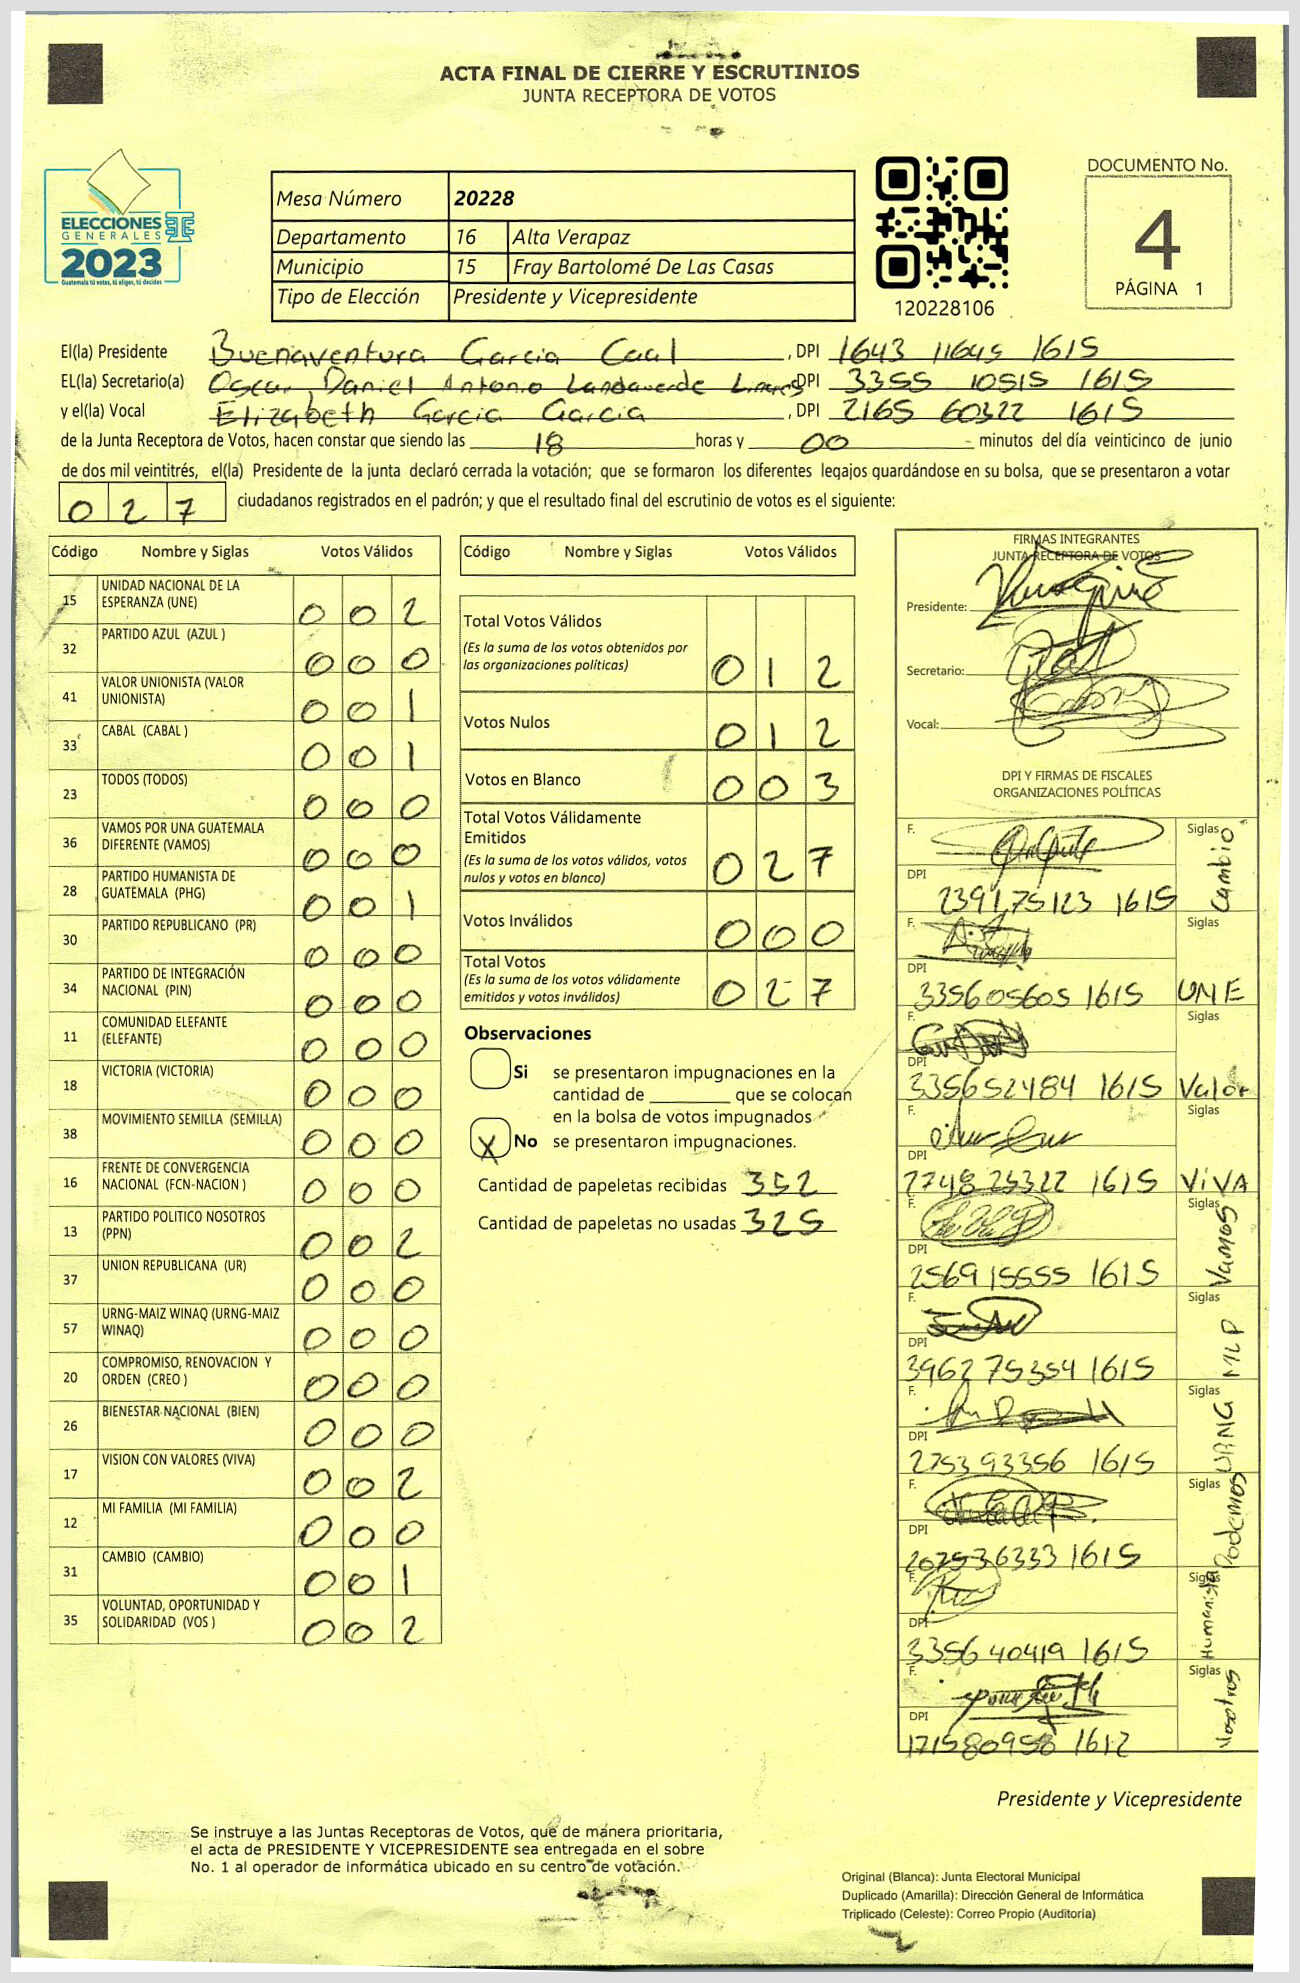 ACTA FINAL DE CIERRE Y ESCRUTINIOS
JUNTA RECEPTORA DE VOTOS
ELECCIONES
GENERALES
2023
Guatemala tú votas, tú eliges, tú decides
Mesa Número 20228
Departamento 16 Alta Verapaz
Municipio 15 Fray Bartolomé De Las Casas
Tipo de Elección Presidente y Vicepresidente
120228106
DOCUMENTO No.
4
PÁGINA 1
El(la) Presidente Buenaventura Garcia Caal, DPI 1643 11645 1615
EL(la) Secretario(a) Oscar Daniel Antonio Landaverde Linares DPI 3355 10515 1615
y el(la) Vocal Elizabeth Garcia Garcia, DPI 2165 60322 1615
de la Junta Receptora de Votos, hacen constar que siendo las 18 horas y 00 minutos del día veinticinco de junio
de dos mil veintitrés, el(la) Presidente de la junta declaró cerrada la votación; que se formaron los diferentes legajos guardándose en su bolsa, que se presentaron a votar
027 ciudadanos registrados en el padrón; y que el resultado final del escrutinio de votos es el siguiente:
Código Nombre y Siglas Votos Válidos
15 UNIDAD NACIONAL DE LA ESPERANZA (UNE) 002
32 PARTIDO AZUL (AZUL ) 000
41 VALOR UNIONISTA (VALOR UNIONISTA) 001
33 CABAL (CABAL ) 001
23 TODOS (TODOS) 000
36 VAMOS POR UNA GUATEMALA DIFERENTE (VAMOS) 000
28 PARTIDO HUMANISTA DE GUATEMALA (PHG) 001
30 PARTIDO REPUBLICANO (PR) 000
34 PARTIDO DE INTEGRACIÓN NACIONAL (PIN) 000
11 COMUNIDAD ELEFANTE (ELEFANTE) 000
18 VICTORIA (VICTORIA) 000
38 MOVIMIENTO SEMILLA (SEMILLA) 000
16 FRENTE DE CONVERGENCIA NACIONAL (FCN-NACION ) 000
13 PARTIDO POLITICO NOSOTROS (PPN) 002
37 UNION REPUBLICANA (UR) 000
57 URNG-MAIZ WINAQ (URNG-MAIZ WINAQ) 000
20 COMPROMISO, RENOVACION Y ORDEN (CREO ) 000
26 BIENESTAR NACIONAL (BIEN) 000
17 VISION CON VALORES (VIVA) 002
12 MI FAMILIA (MI FAMILIA) 000
31 CAMBIO (CAMBIO) 001
35 VOLUNTAD, OPORTUNIDAD Y SOLIDARIDAD (VOS ) 002
Código Nombre y Siglas Votos Válidos
Total Votos Válidos 012
(Es la suma de los votos obtenidos por
las organizaciones políticas)
Votos Nulos 012
Votos en Blanco 003
Total Votos Válidamente
Emitidos 027
(Es la suma de los votos válidos, votos
nulos y votos en blanco)
Votos Inválidos 000
Total Votos 027
(Es la suma de los votos válidamente
emitidos y votos inválidos)
Observaciones
Si se presentaron impugnaciones en la
cantidad de ________ que se colocan
en la bolsa de votos impugnados
X No se presentaron impugnaciones.
Cantidad de papeletas recibidas 352
Cantidad de papeletas no usadas 325
FIRMAS INTEGRANTES
JUNTA RECEPTORA DE VOTOS
Presidente:
Secretario:
Vocal:
DPI Y FIRMAS DE FISCALES
ORGANIZACIONES POLÍTICAS
F. Siglas Cambio
DPI 2391 75123 1615
F. Siglas UNE
DPI 3356 05605 1615
F. Siglas Valor
DPI 3356 52484 1615
F. Siglas VIVA
DPI 2748 25322 1615
F. Siglas Vamos
DPI 2569 15555 1615
F. Siglas MLP
DPI 3962 75354 1615
F. Siglas URNG
DPI 2753 93356 1615
F. Siglas Podemos
DPI 2075 36333 1615
F. Siglas Humanista
DPI 3356 40419 1615
F. Siglas Nosotros
DPI 1715 80958 1612
Presidente y Vicepresidente
Se instruye a las Juntas Receptoras de Votos, que de manera prioritaria,
el acta de PRESIDENTE Y VICEPRESIDENTE sea entregada en el sobre
No. 1 al operador de informática ubicado en su centro de votación.
Original (Blanca): Junta Electoral Municipal
Duplicado (Amarilla): Dirección General de Informática
Triplicado (Celeste): Correo Propio (Auditoría)